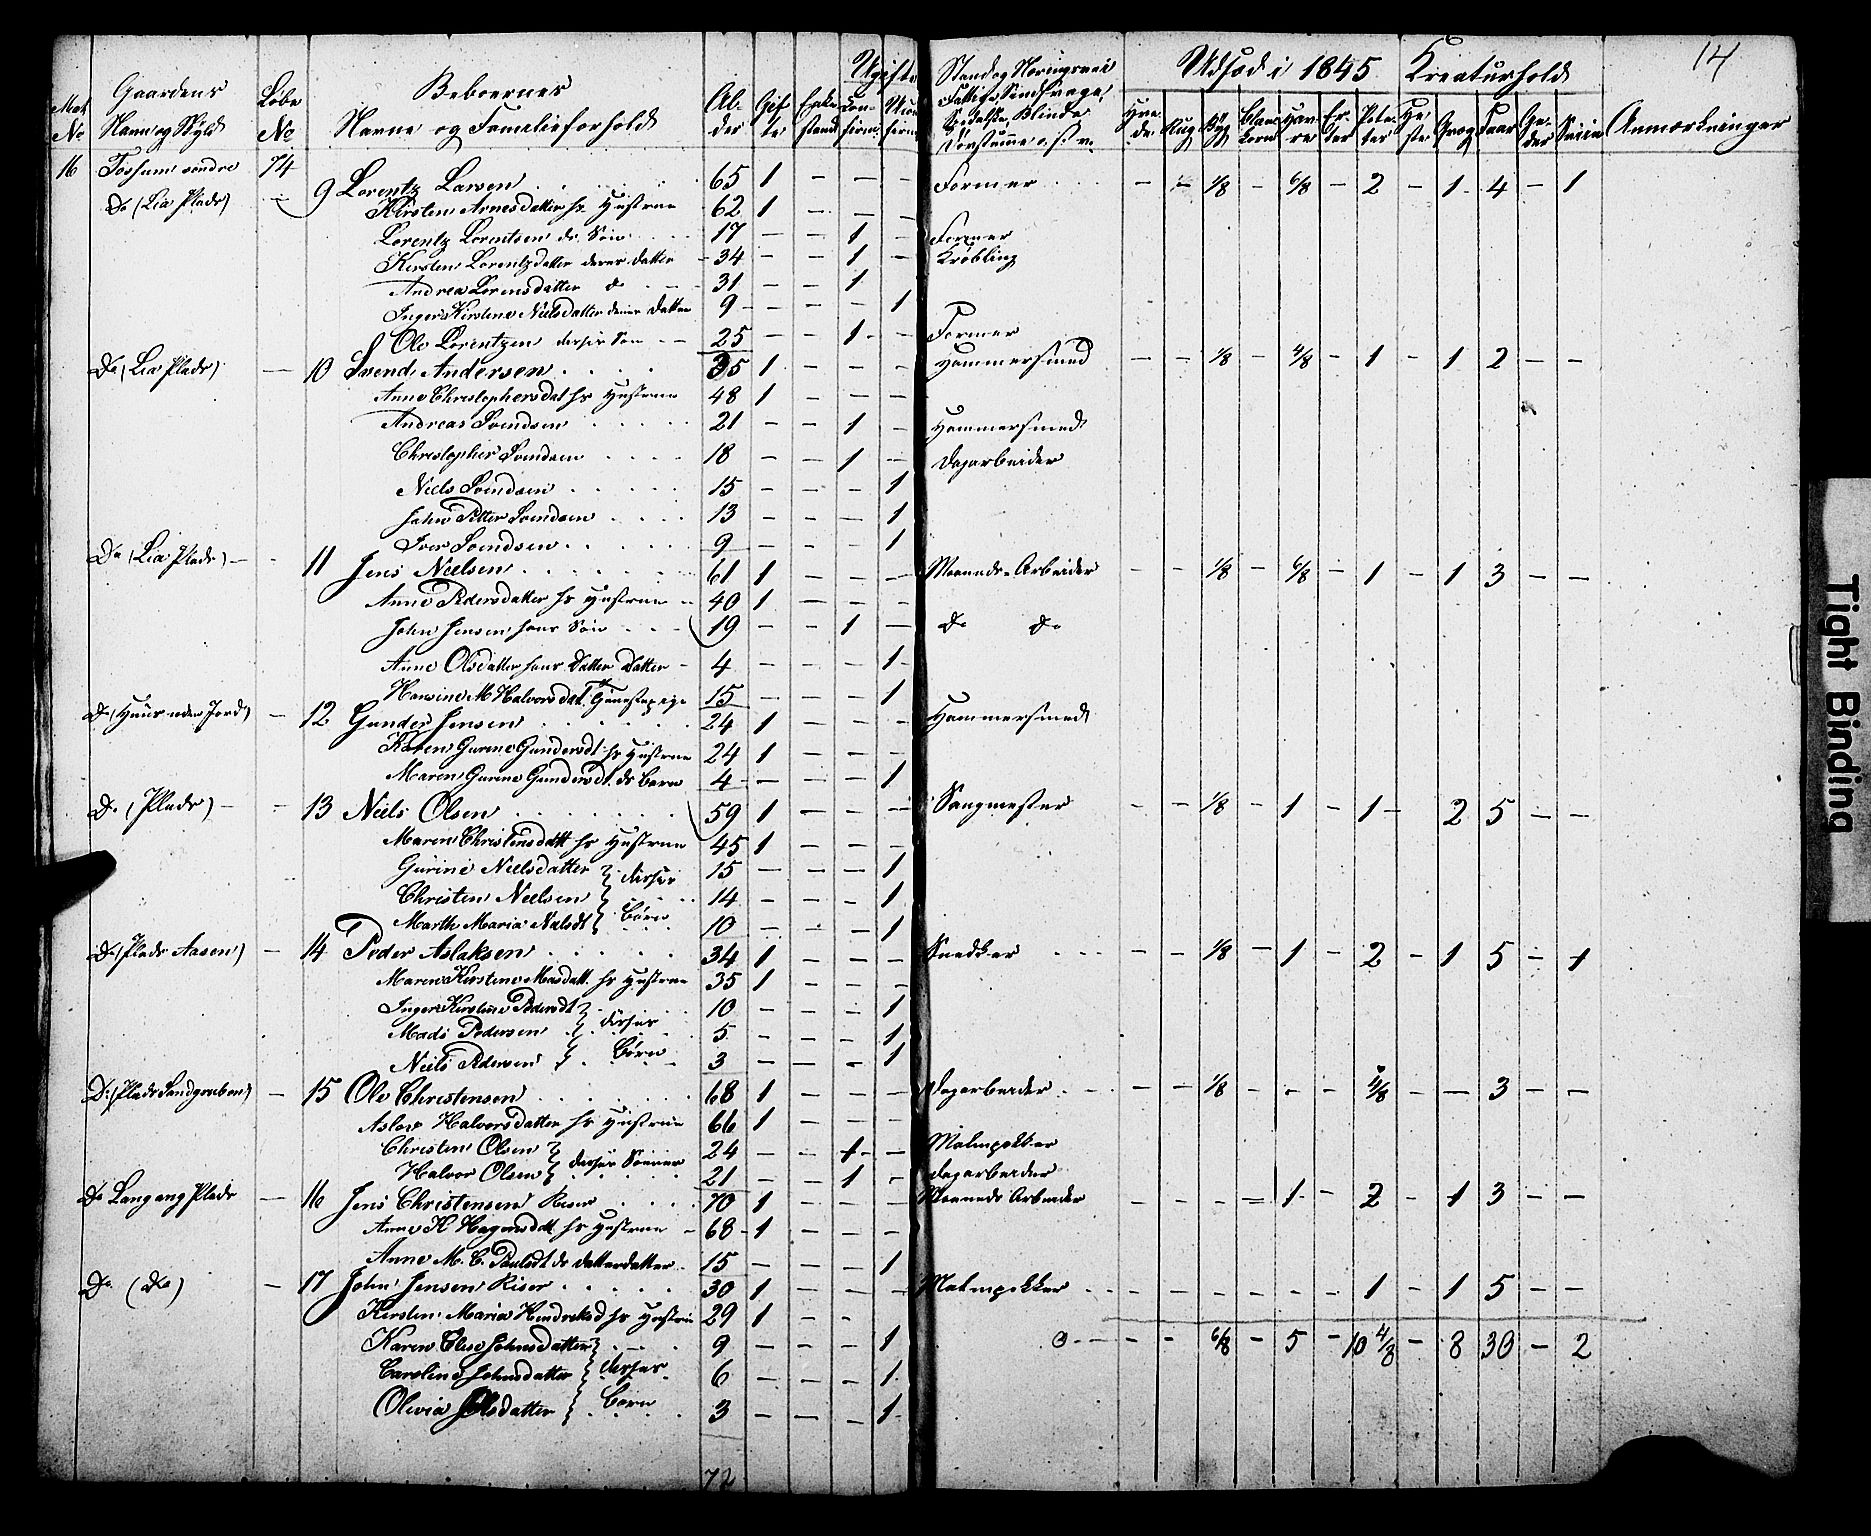 14
Mat. No Gaardens Navn og Skyld Løbe No Beboernes Navne og Familieforhold Alder Gifte Enkestand Ugifte Confirm. Stand og Næringsvei Udsæd i 1845 Kreaturhold Anmærkninger
Hvede Rug Byg Blandkorn Havre Erter Poteter Heste Faar Geder Sviin
16 Fossum søndre 74
Do (Lia Plads) 9 Lorentz Larsen 65 1 - - - Former - - 1/8 - 6/8 - 2 - 1 4 - 1
Kirsten Arnesdatter hs Hustrue 62 1 - - -
Lorentz Lorentsen ds Søn 17 - - 1 - Former
Kirsten Lorentzdatter deres Datter 34 - - 1 - Krøbling
Andrea Lorensdatter do 31 - - 1
Inger Kirstine Nielsdatter denes Datter 9 - - - 1
Ole Lorentzen deres Søn 25 - - 1 - Former
Do (Lia Plads) - 10 Svend Andersen 35 1 - - - Hammersmed - - 1/8 - 4/8 - 1 - 1 2 - -
Anne Christophersdat hs Hustrue 48 1 - - -
Andreas Svendsen 21 - - 1 - Hammersmed
Christopher Svendsen 18 - - 1 - Dagarbeider
Niels Svendsen 15 - - - 1
John Petter Svendsen 13 - - - 1
Iver Svendsen 9 - - 1
Do (Lia Plads) - 11 Jens Nielsen 61 1 - - - Maaneds-Arbeider - - 1/8 - 6/8 - 1 - 1 3 - -
Anne Pedersdatter hs Hustrue 40 1 - - -
John Jensen hans Søn 19 - - 1 - Do Do
Anne Olsdatter hans Datter Datter 4 - - - 1
Hansine M Halvorsdat. Tjenestepige 15 - - - 1
Do (Huus uden Jord) - 12 Gunder Jensen 24 1 - - - Hammersmed
Karen Gurine Gundersdt hs Hustrue 24 1 - - -
Maren Gurine Gundersdt. ds Barn 4 - - - 1
Do (Plads) - 13 Niels Olsen 59 1 - - - Sangmester - - 1/8 - 1 - 1 - 2 5 - -
Maren Christensdatt hs Hustrue 45 1 - - -
Gurine Nielsdatter } disses 15 - - - 1
Christen Nielsen 14 - - - 1
Marth Maria Nielsdt } Børn 10 - - - 1
Do (Plads Aasen) - 14 Peder Aslaksen 34 1 - - - Snedker - - 1/8 - 1 - 2 - 1 5 - 1
Maren Kirstine Masdatt. hs Hustrue 35 1 - - -
Inger Kirstine Pedersdt } 10 - - - 1
Mads Pedersen } disses 5 - - - 1
Niels Pedersen } Børn 3 - - - 1
Do (Plads Sandgruben) - 15 Ole Christensen 68 1 - - - Dagarbeider - - 1/8 - - - 4/8 - - 3 - -
Aslov Halvorsdatter hs Hustrue 66 1 - - -
Christen Olsen } disses Sønner 24 - - 1 - Malmpekker
Halvor Olsen } 21 - - 1 - Dagarbeider
Do Langang Plads - 16 Jens Christensen Riser 70 1 - - - Maaneds Arbeider - - - - 1 - 2 - 1 3 - -
Anne H Hagensdatt hs Hustrue 68 1 - - -
Anne M. C. Paulsdt ds datterdatter 15 - - - 1
Do (Do) - 17 John Jensen Riser 30 1 - - - Malmpekker - - - - - - 1 - 1 5 - -
Kirsten Maria Hendriksd hs Hustrue 29 1 - -
- - 6/8 - 5 - 10 4/8 - 8 30 - 2
Karen Elise Johnsdatter } 9 - - - 1
Caroline Johnsdatter } disses 6 - - - 1
Olivia Johnsdatter } Børn 3 - - - 1
72
Tight Binding